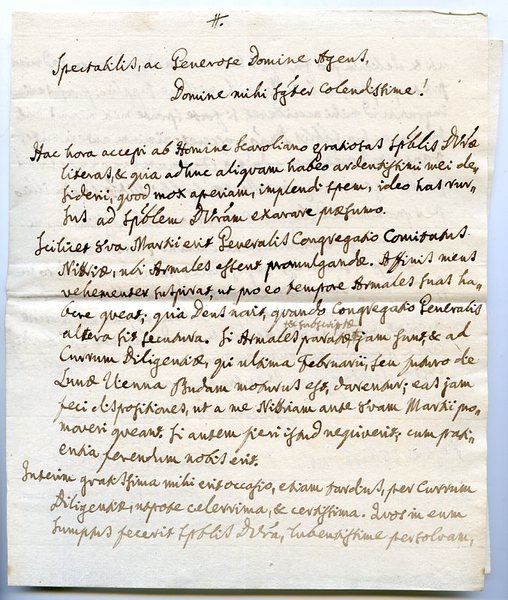 Spectabilis, ac Generose Domine Agens,
Domine mihi sǵter Colendissime!
Hac hora accepi ab Homine Scavoliano gratiosas Spblis Dvræ
literas, & quia adhuc aliquam habeo ardentissimi mei de-
siderii, quod mox aperiam, implendi spem, ideo has rur-
sus ad Spblem Dvram exarare præsumo.
Scilicet 8va Martii erit Generalis Congregatio Comitatus
Nittriæ, ubi Armales essent promulgandæ. Affinis meus
vehementer suspirat, ut pro eo tempore Armales suas ha-
bere queat; quia Deus novit, quando Congregatio Generalis
altera sit secutura. Si Armales paratæ & subscriptæ jam sunt, & ad
Currum Diligentiæ, qui ultima Februarii, seu futuro die
Lunæ Vienna Budam moturus est, darentur; eas jam
feci dispositiones, ut a me Nittriam ante 8vam Martii pro-
moveri queant. Si autem fieri istud nequiverit, cum pati-
entia ferendum nobis erit.
Interim gratissima mihi erit occasio, etiam tardius, per Currum
Diligentiæ, utpote celerrima, & certissima. Quos in eum
sumptus fecerit Spblis Dvra, lubentissime persolvam,